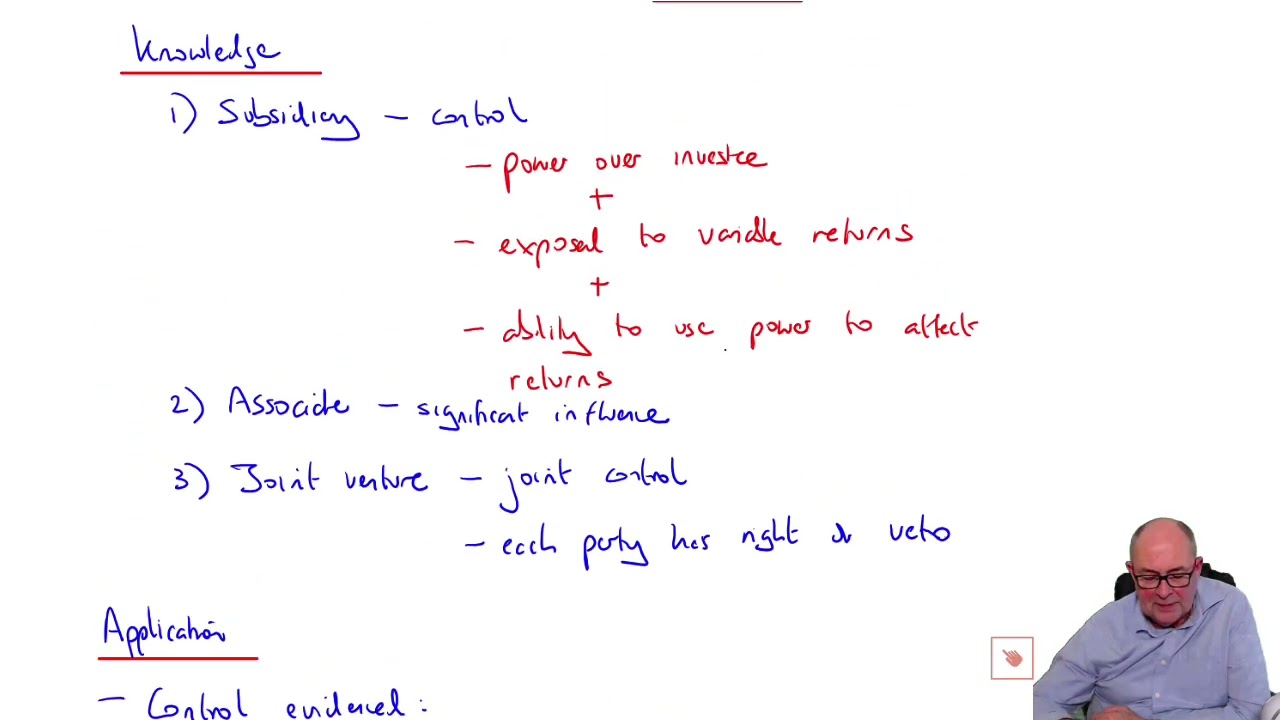 Knowledge
1) Subsidiary - control
- power over investee
+
- exposal to variable returns
+
- ability to use power to affect
returns
2) Associate - significant influence
3) Joint venture - joint control
- each party has right of veto
Application
- Control evidenced: